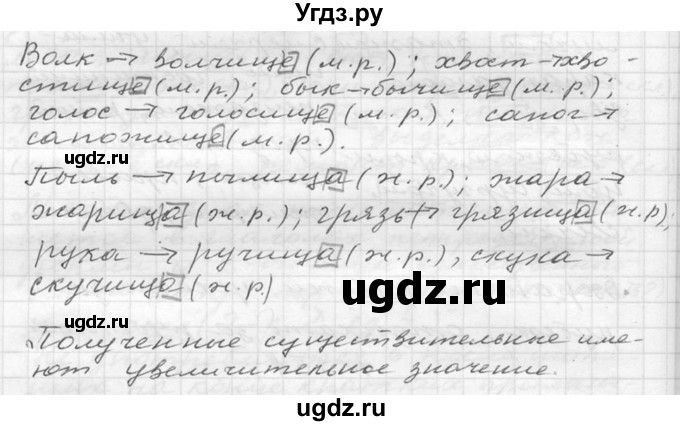 Угдз.ру
Волк → волчище (м.р.); хвост → хво-
стище (м.р.); бык → бычище (м.р.);
голос → голосище (м.р.); сапог →
сапожище (м.р.).
ugdz.ru
ugdz.ru
Пыль → пылища (ж.р.); жара →
жарища (ж.р.); грязь → грязища (ж.р);
рука → ручища (ж.р.), скука →
скучища (ж.р.)
ugdz.ru
Полученные существительные име-
ют увеличительное значение.
ugdz.ru
ugdz.ru
ugdz.ru